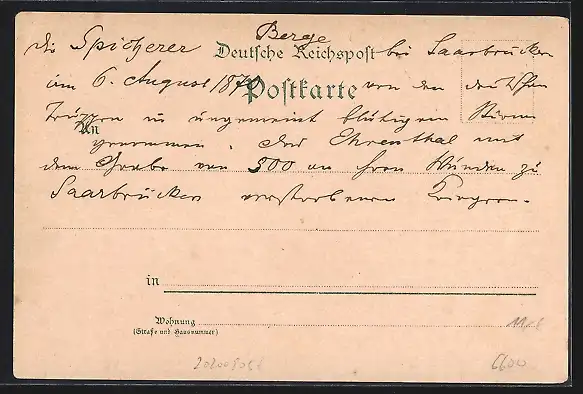 Die Spicherer Berge bei Saarbrücken
Deutsche Reichspost
am 6. August 1870 von den deutschen
Postkarte
Truppen in ungemein blutigem Sturm
An
genommen. Das Ehrenthal mit
dem Grabe von 500 an ihren Wunden zu
Saarbrücken verstorbenen Kriegern.
in
Wohnung
(Straße und Hausnummer)